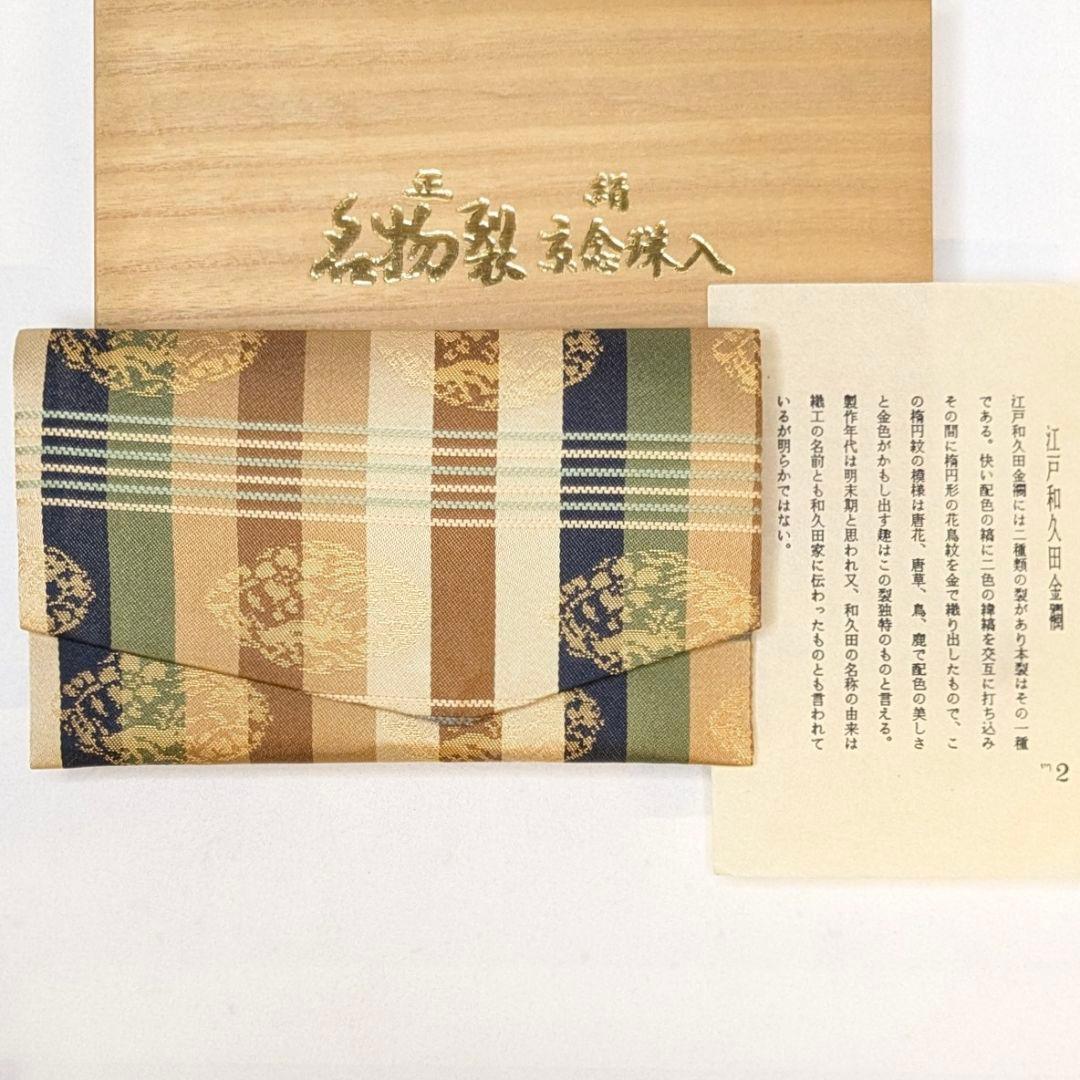 正絹
名物裂 京念珠入
江戸和久田金襴
江戸和久田金襴には二種類の裂があり本裂はその一種
である。快い配色の縞に二色の緯縞を交互に打ち込み
その間に楕円形の花鳥紋を金で織り出したもので、こ
の楕円紋の模様は唐花、唐草、鳥、鹿で配色の美しさ
と金色がかもし出す趣はこの裂独特のものと言える。
製作年代は明末期と思われ又、和久田の名称の由来は
織工の名前とも和久田家に伝わったものとも言われて
いるが明らかではない。
2